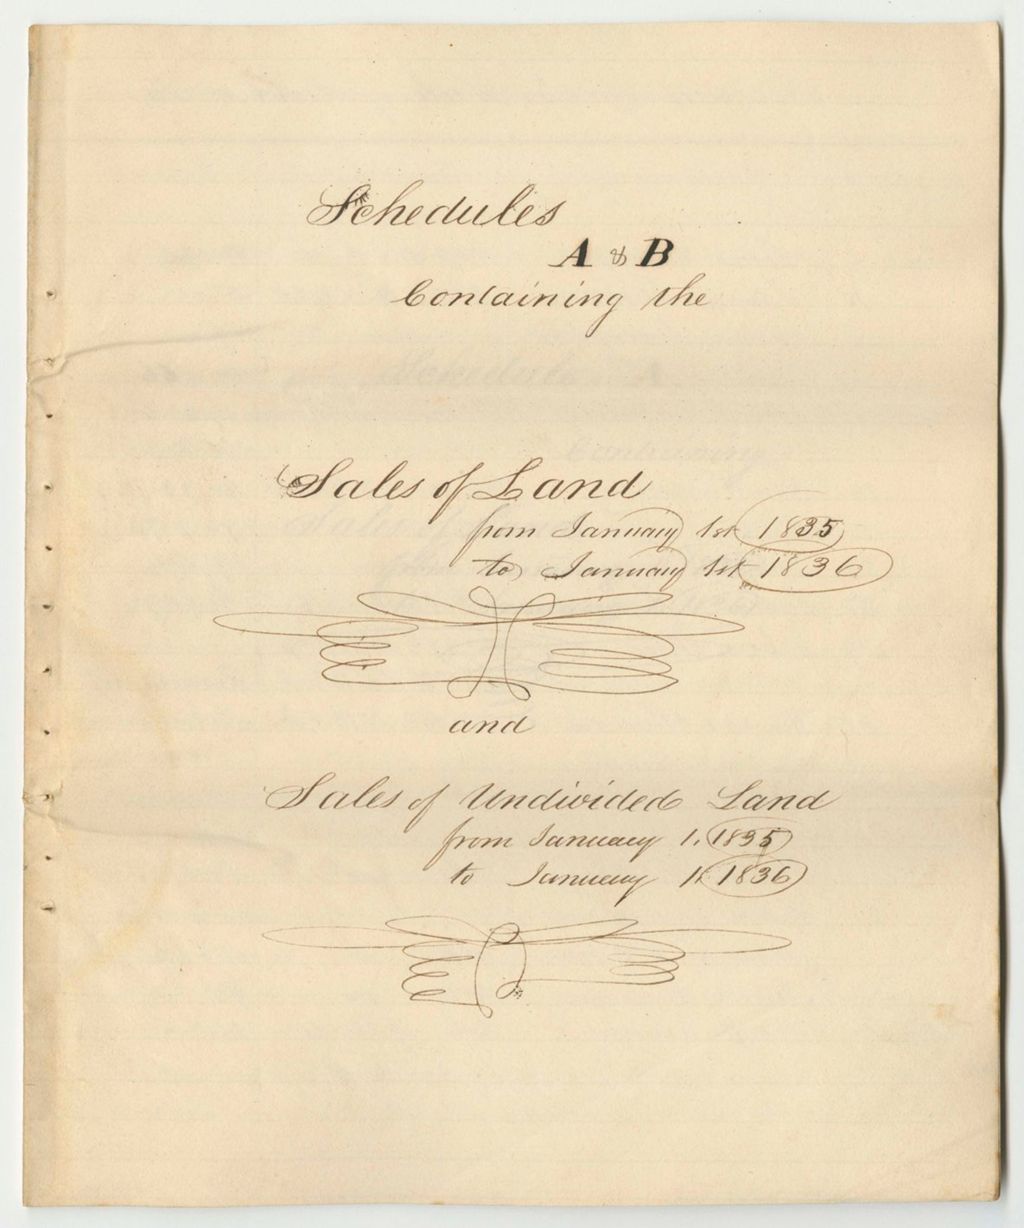 Schedules
A & B
Containing the
Sales of Land
from January 1st 1835
to January 1st 1836
and
Sales of Undivided Land
from January 1. 1835
to January 1. 1836